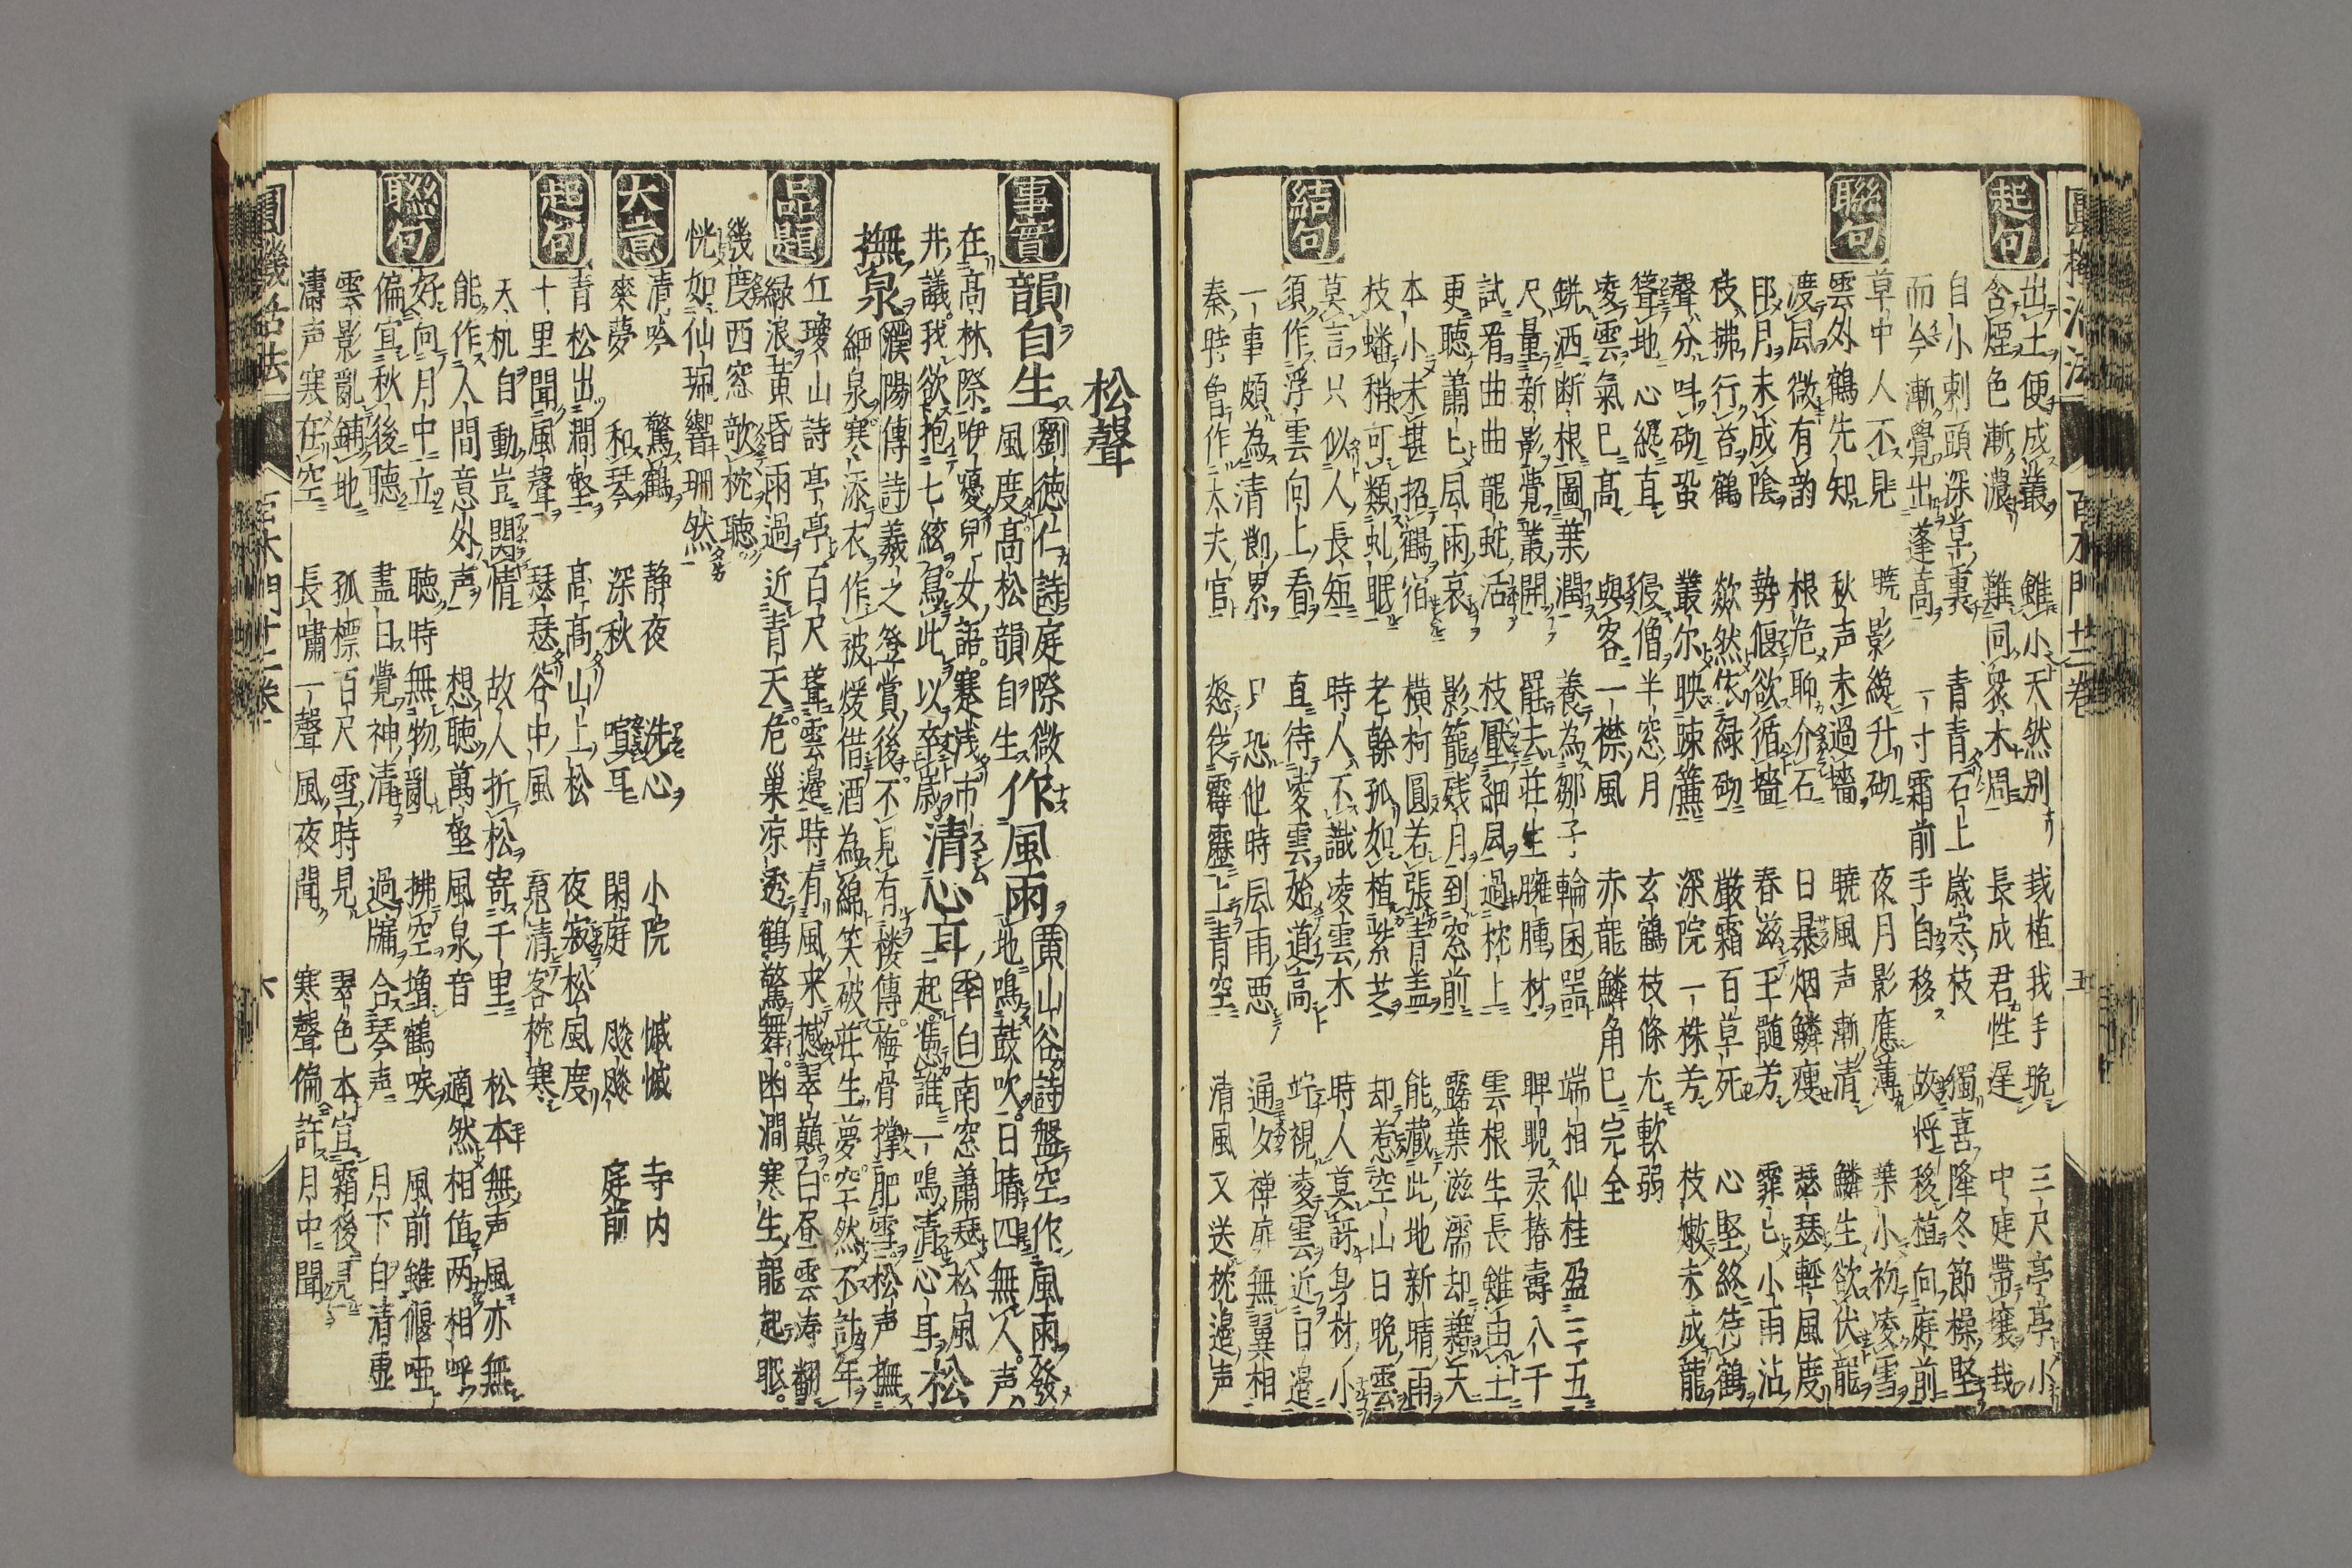 圓機活法 百木門廿二卷 五
起句
出土便成叢 雖小天然别 栽植我手晩 三尺亭亭小
含煙色漸濃 難同衆木周 長成君性遅 中庭帶壤栽
自小刺頭深草裏 青青石上歳寒枝 獨喜隆冬節操堅
而今漸覺出蓬高 一寸霜前手自移 故将移植向庭前
草中人不見 暁影纔升砌 夜月影應薄 葉小初凌雪
聯句
雲外鶴先知 秋声未過墻 暁風声漸清 鱗生欲伏龍
渡風微有韵 根危聊介石 日暴烟鱗痩 瑟瑟輕風度
月未成陰 勢偃欲循墻 春滋玉髄芳 霏霏小雨沾
枝拂行苔鶴 歘然依緑砌 厳霜百草死 心堅終待鶴
聲分吽砌蛩 叢尓映踈簾 深院一株芳 枝嫩未成龍
聳地心縦直 侵僧半窓月 玄鶴枝條尤軟弱
凌雲氣已髙 與客一襟風 赤龍鱗角已完全
銚洒断根圖葉潤 養為鄒子輪囷器 端相仙桂盈三五
尺量新影覚叢開 罷去莊生臃腫材 睥睨灵椿壽八千
試看曲曲龍蛇活 枝壓細風過枕上 雲根生長雖由土
更聴蕭蕭風雨哀 影籠残月到窓前 露葉滋濡却藉天
本小未堪招鶴宿 横柯圓若張青盖 能蔵此地新晴雨
枝蟠稍可類虬眠 老幹孤如植紫芝 却惹空山日晩雲
莫言只似人長短 時人不識凌雲木 時人莫訝身材小
結句
須作浮雲向上看 直待凌雲始道高 竚視凌雲近日邉
一事頗為清節累 只恐他時風雨悪 通夕禅扉無翼相
秦時曾作大夫官 怒従霹靂上青空 清風又送枕邉声
松聲
事實
韻自生 劉徳仁詩 庭際微
風度髙松韻自生 作風雨 黄山谷詩 盤空作風雨發
地鳴鼓吹日晴四無人声
在高林際咿嚘兒女語寒淺市
井議我欲抱七絃為此以卒歳 清心耳 季白 南窓蕭瑟松風
起憑誰一鳴清心耳 松
撫泉 濮陽傳詩 羲之登賞後不見有楼傳梅骨撑肥雪松声撫
細泉寒添衣作被煖借酒為綿笑破莊生夢空然不計年
品題
紅瓊山詩 亭亭百尺聳雲邉時有風来撼翠巓白昼雲涛翻
緑浪黄昏雨過近青天危巣凉透鶴驚舞幽澗寒生龍起眠
幾度西窓欹枕聴
恍如仙珮響珊然
大意
清吟 驚鶴 静夜 洗心 小院 憾憾 寺内
來夢 和琴 深秋 喧耳 閑庭 飋飋 庭前
起句
青松出澗壑 髙髙山上松 夜寂松風度
十里聞風聲 瑟瑟谷中風 竟清客枕寒
天机自動豈関情 故人折松寄千里 松本無声風亦無
能作人間意外声 想聴萬壑風泉音 適然相值両相呼
聯句
好向月中立 聴時無物亂 拂空増鶴唳 風前雖偃啞
偏宜秋後聴 盡日覺神清 過牖合琴声 月下自清虚
雲影亂鋪地 孤標百尺雪時見 翠色本宜霜後見
濤声寒在空 長嘯一聲風夜聞 寒聲偏許月中聞
圓機活法 百木門廿二卷 六